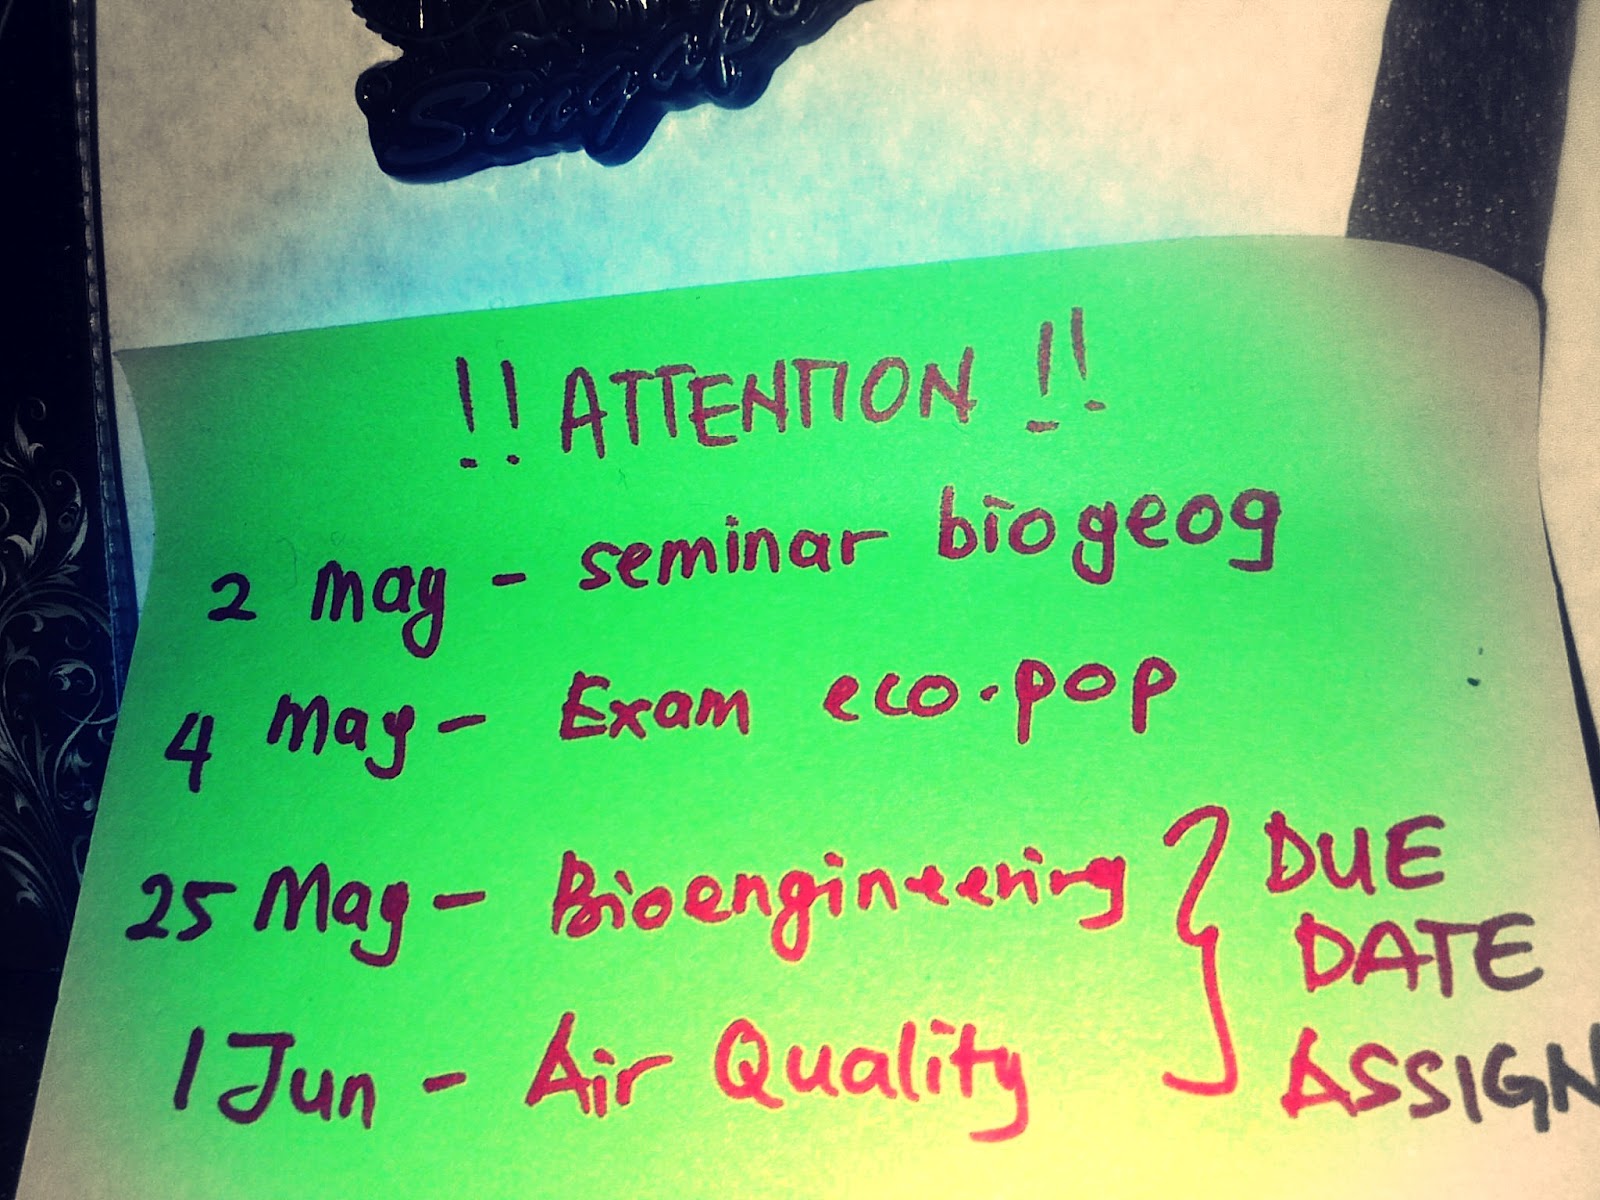 Singap
!! ATTENTION !!
2 May - seminar biogeog
4 May - Exam eco.pop
25 May - Bioengineering
1 Jun - Air Quality
DUE
DATE
ASSIGN